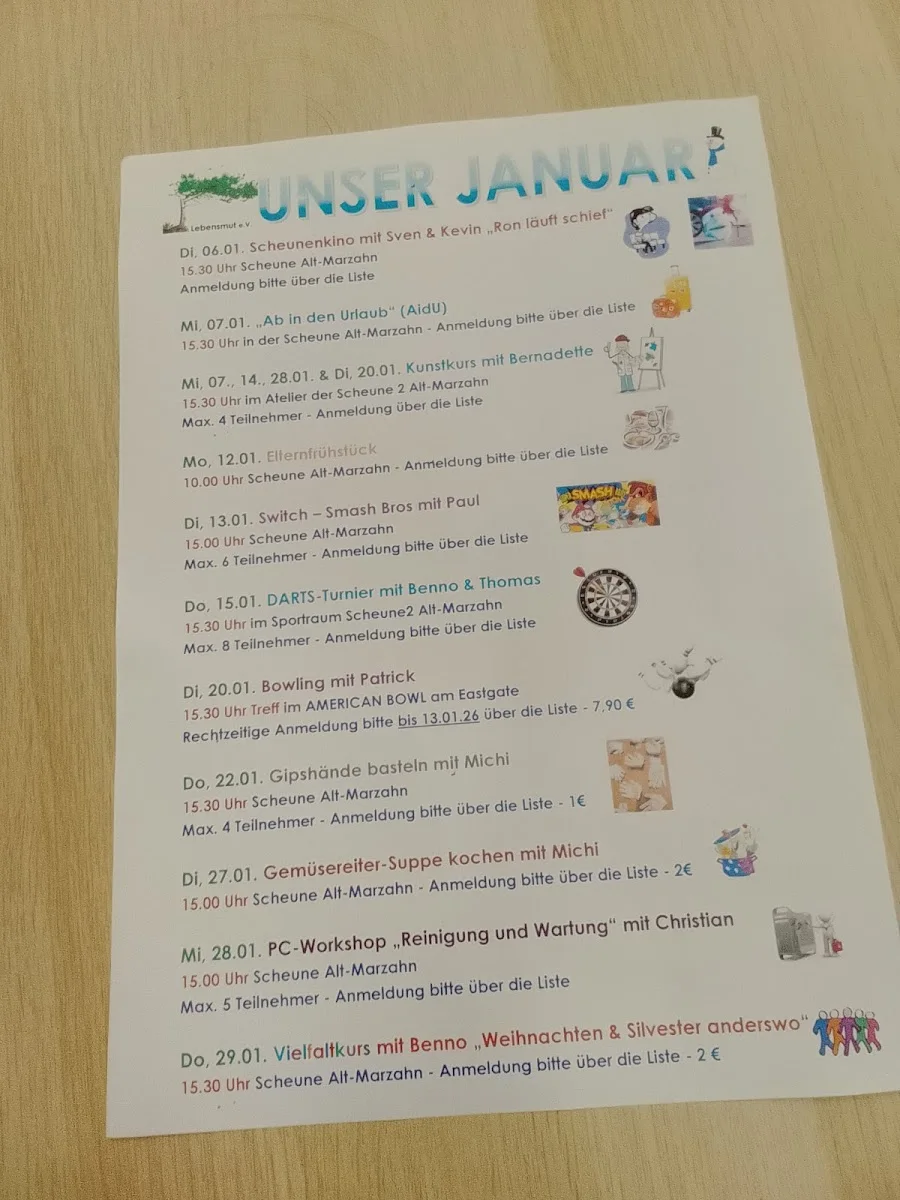 UNSER JANUAR
Lebensmut e.V
Di, 06.01. Scheunenkino mit Sven & Kevin „Ron läuft schief“
15.30 Uhr Scheune Alt-Marzahn
Anmeldung bitte über die Liste
Mi, 07.01. „Ab in den Urlaub“ (AidU)
15.30 Uhr in der Scheune Alt-Marzahn - Anmeldung bitte über die Liste
Mi, 07., 14., 28.01. & Di, 20.01. Kunstkurs mit Bernadette
15.30 Uhr im Atelier der Scheune 2 Alt-Marzahn
Max. 4 Teilnehmer - Anmeldung über die Liste
Mo, 12.01. Elternfrühstück
10.00 Uhr Scheune Alt-Marzahn - Anmeldung bitte über die Liste
Di, 13.01. Switch – Smash Bros mit Paul
SMASH
15.00 Uhr Scheune Alt-Marzahn
Max. 6 Teilnehmer - Anmeldung bitte über die Liste
Do, 15.01. DARTS-Turnier mit Benno & Thomas
15.30 Uhr im Sportraum Scheune2 Alt-Marzahn
Max. 8 Teilnehmer - Anmeldung bitte über die Liste
Di, 20.01. Bowling mit Patrick
15.30 Uhr Treff im AMERICAN BOWL am Eastgate
Rechtzeitige Anmeldung bitte bis 13.01.26 über die Liste - 7,90 €
Do, 22.01. Gipshände basteln mit Michi
15.30 Uhr Scheune Alt-Marzahn
Max. 4 Teilnehmer - Anmeldung bitte über die Liste - 1€
Di, 27.01. Gemüsereiter-Suppe kochen mit Michi
15.00 Uhr Scheune Alt-Marzahn - Anmeldung bitte über die Liste - 2€
Mi, 28.01. PC-Workshop „Reinigung und Wartung“ mit Christian
15.00 Uhr Scheune Alt-Marzahn
Max. 5 Teilnehmer - Anmeldung bitte über die Liste
Do, 29.01. Vielfaltkurs mit Benno „Weihnachten & Silvester anderswo“
15.30 Uhr Scheune Alt-Marzahn - Anmeldung bitte über die Liste - 2 €